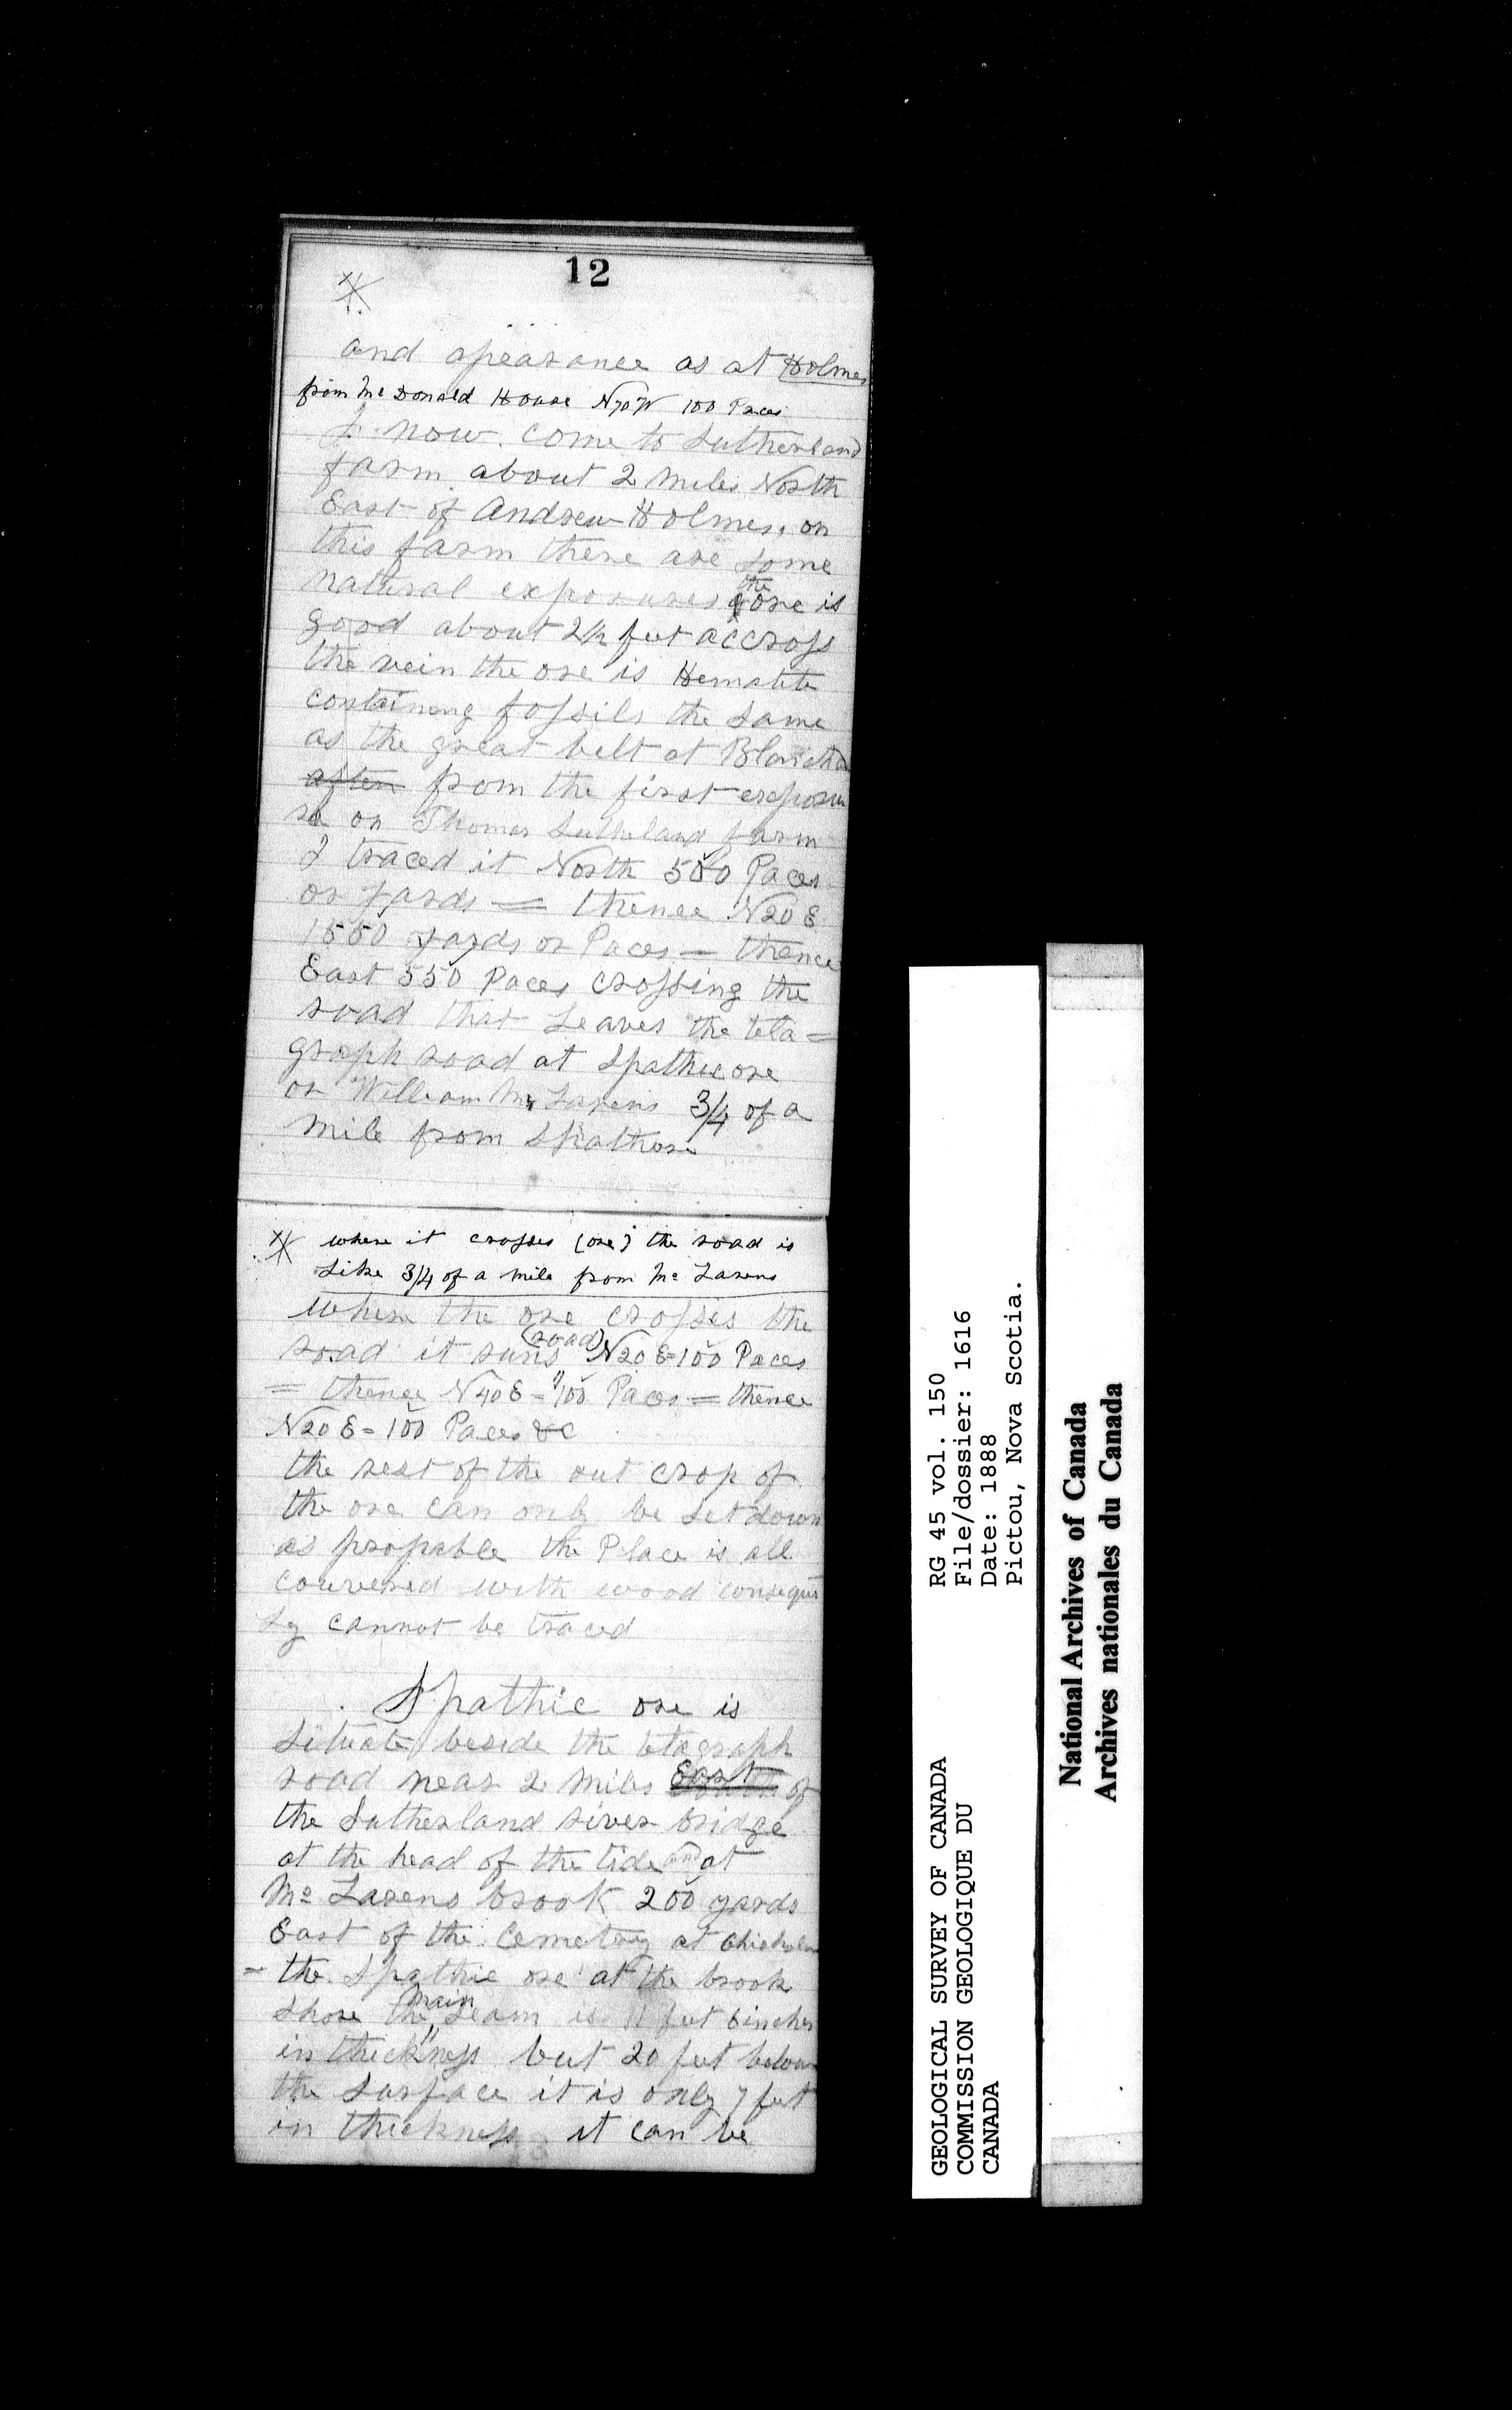 12
and apearance as at Holmes
from Mc Donald House N70W 100 Paces
I now come to Sutherland
farm about 2 miles North
East of Andrew Holmes, on
this farm there are some
natural exposures the ore is
good about 2½ feet accross
the vein the ore is Hematite
containing fossils the same
as the great belt at
after from the first exposu
re on Thomas Sutheland farm
I traced it North 500 Paces
or yards = thence N20E
1550 yards or Paces = thence
East 550 Paces crossing the
road that Leaves the tela=
graph road at Spathic ore
or William Mc Larens 3/4 of a
mile from Spathore
where it crosses (ore) the road is
Like 3/4 of a mile from Mc Larens
where the ore crosses the
road it runs (road) N20E=100 Paces
= thence N40E=100 Paces = thence
N20E=100 Paces &c
the rest of the out crop of
the ore can only be set down
as propable the Place is all
couvered with wood consequ
ly cannot be traced
Spathic ore is
Situate beside the telegraph
road near 2 miles East of
the Sutherland river bridge
at the head of the tide and at
Mc Larens brook 200 yards
East of the Cemetery at
= the Spathic ore at the brook
shore the main Seam is 11 feet 6 inches
in thickness but 20 feet below
the surface it is only 7 feet
in thickness it can be
GEOLOGICAL SURVEY OF CANADA
COMMISSION GEOLOGIQUE DU
CANADA
RG 45 vol. 150
File/dossier: 1616
Date: 1888
Pictou, Nova Scotia.
National Archives of Canada
Archives nationales du Canada